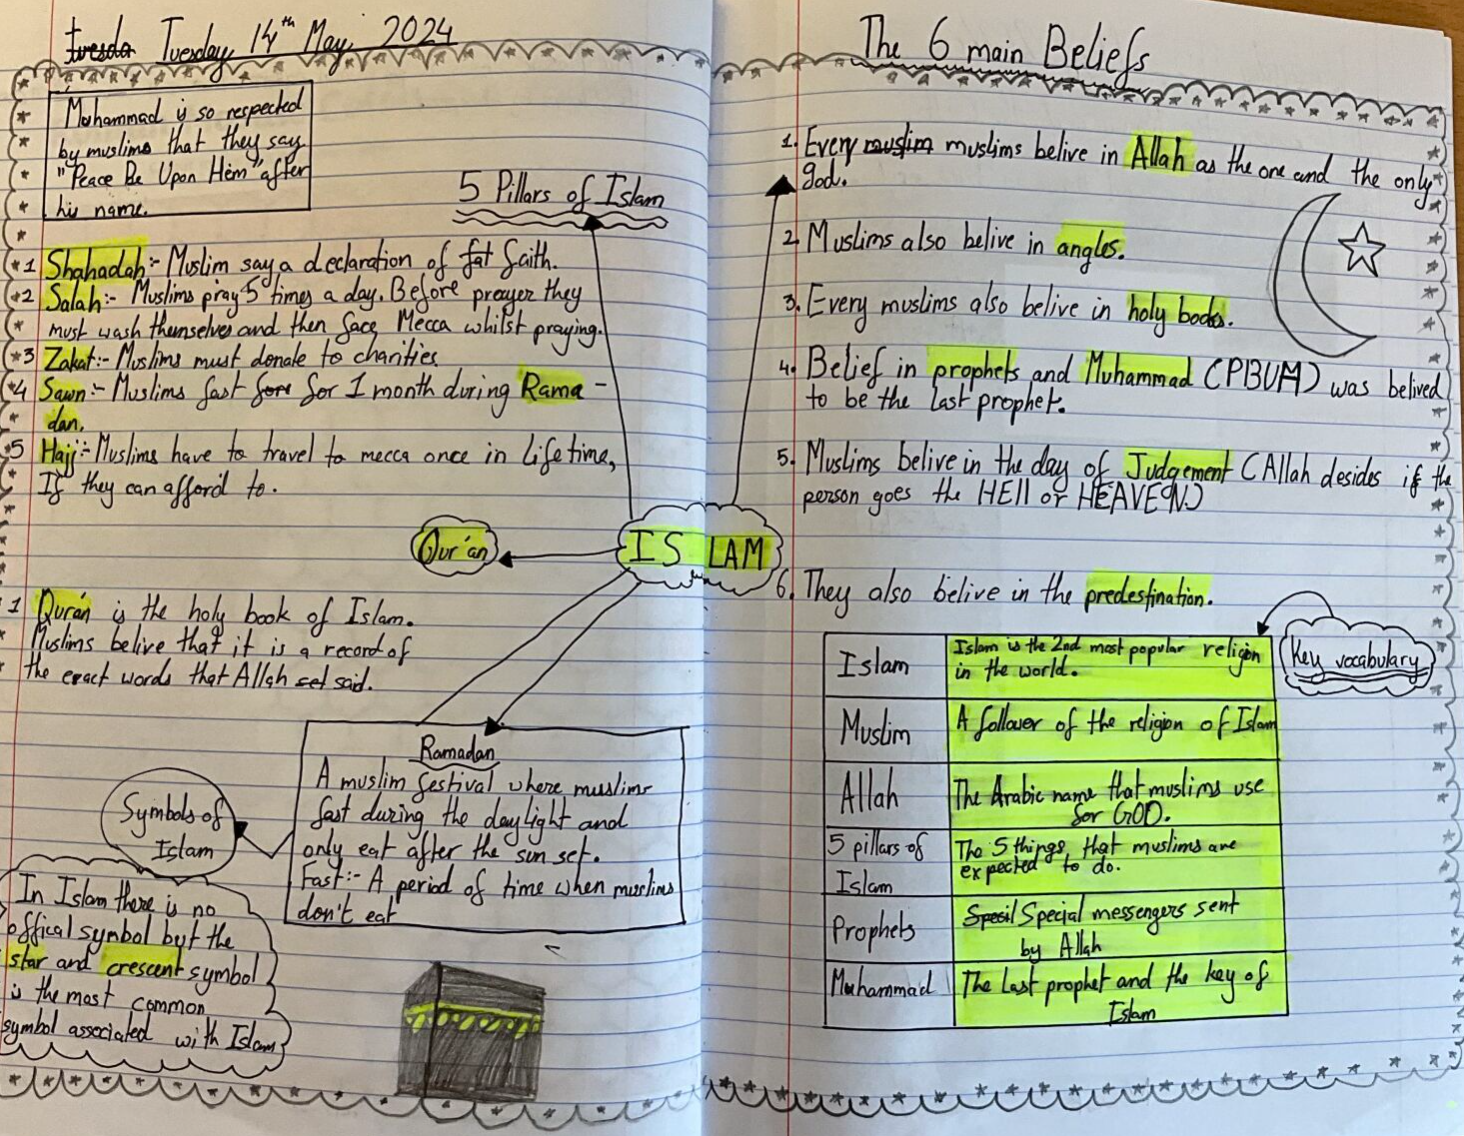 tuesda Tuesday, 14th May, 2024
Muhammad is so respected
by muslims that they say
"Peace Be Upon Him" after
his name.
5 Pillars of Islam
1 Shahadah:- Muslim say a declaration of fat faith.
2 Salah:- Muslims pray 5 times a day. Before prayer they
must wash themselves and then face Mecca whilst praying.
3 Zakat:- Muslims must donate to charities
4 Sawn:- Muslims fast fore for 1 month during Rama-
dan.
5 Hajj:- Muslims have to travel to mecca once in lifetime,
If they can afford to.
Qur'an
ISLAM
1 Qur'an is the holy book of Islam.
Muslims belive that it is a record of
the exact words that Allah set said.
Ramadan
A muslim festival where muslims
fast during the daylight and
only eat after the sun set.
Fast:- A period of time when muslims
don't eat
Symbols of
Islam
In Islam there is no
offical symbol but the
star and crescent symbol
is the most common
symbol associated with Islam
The 6 main Beliefs
1. Every muslim muslims belive in Allah as the one and the only
god.
2. Muslims also belive in angles.
3. Every muslims also belive in holy books.
4. Belief in prophets and Muhammad (PBUM) was belived
to be the last prophet.
5. Muslims belive in the day of Judgement (Allah desides if the
person goes the HELL or HEAVEN)
6. They also belive in the predestination.
Key vocabulary
Islam
Islam is the 2nd most popular religion
in the world.
Muslim
A follower of the religion of Islam
Allah
The Arabic name that muslims use
for GOD.
5 pillars of
Islam
The 5 things, that muslims are
expected to do.
Prophets
Specil Special messengers sent
by Allah
Muhammad
The last prophet and the key of
Islam